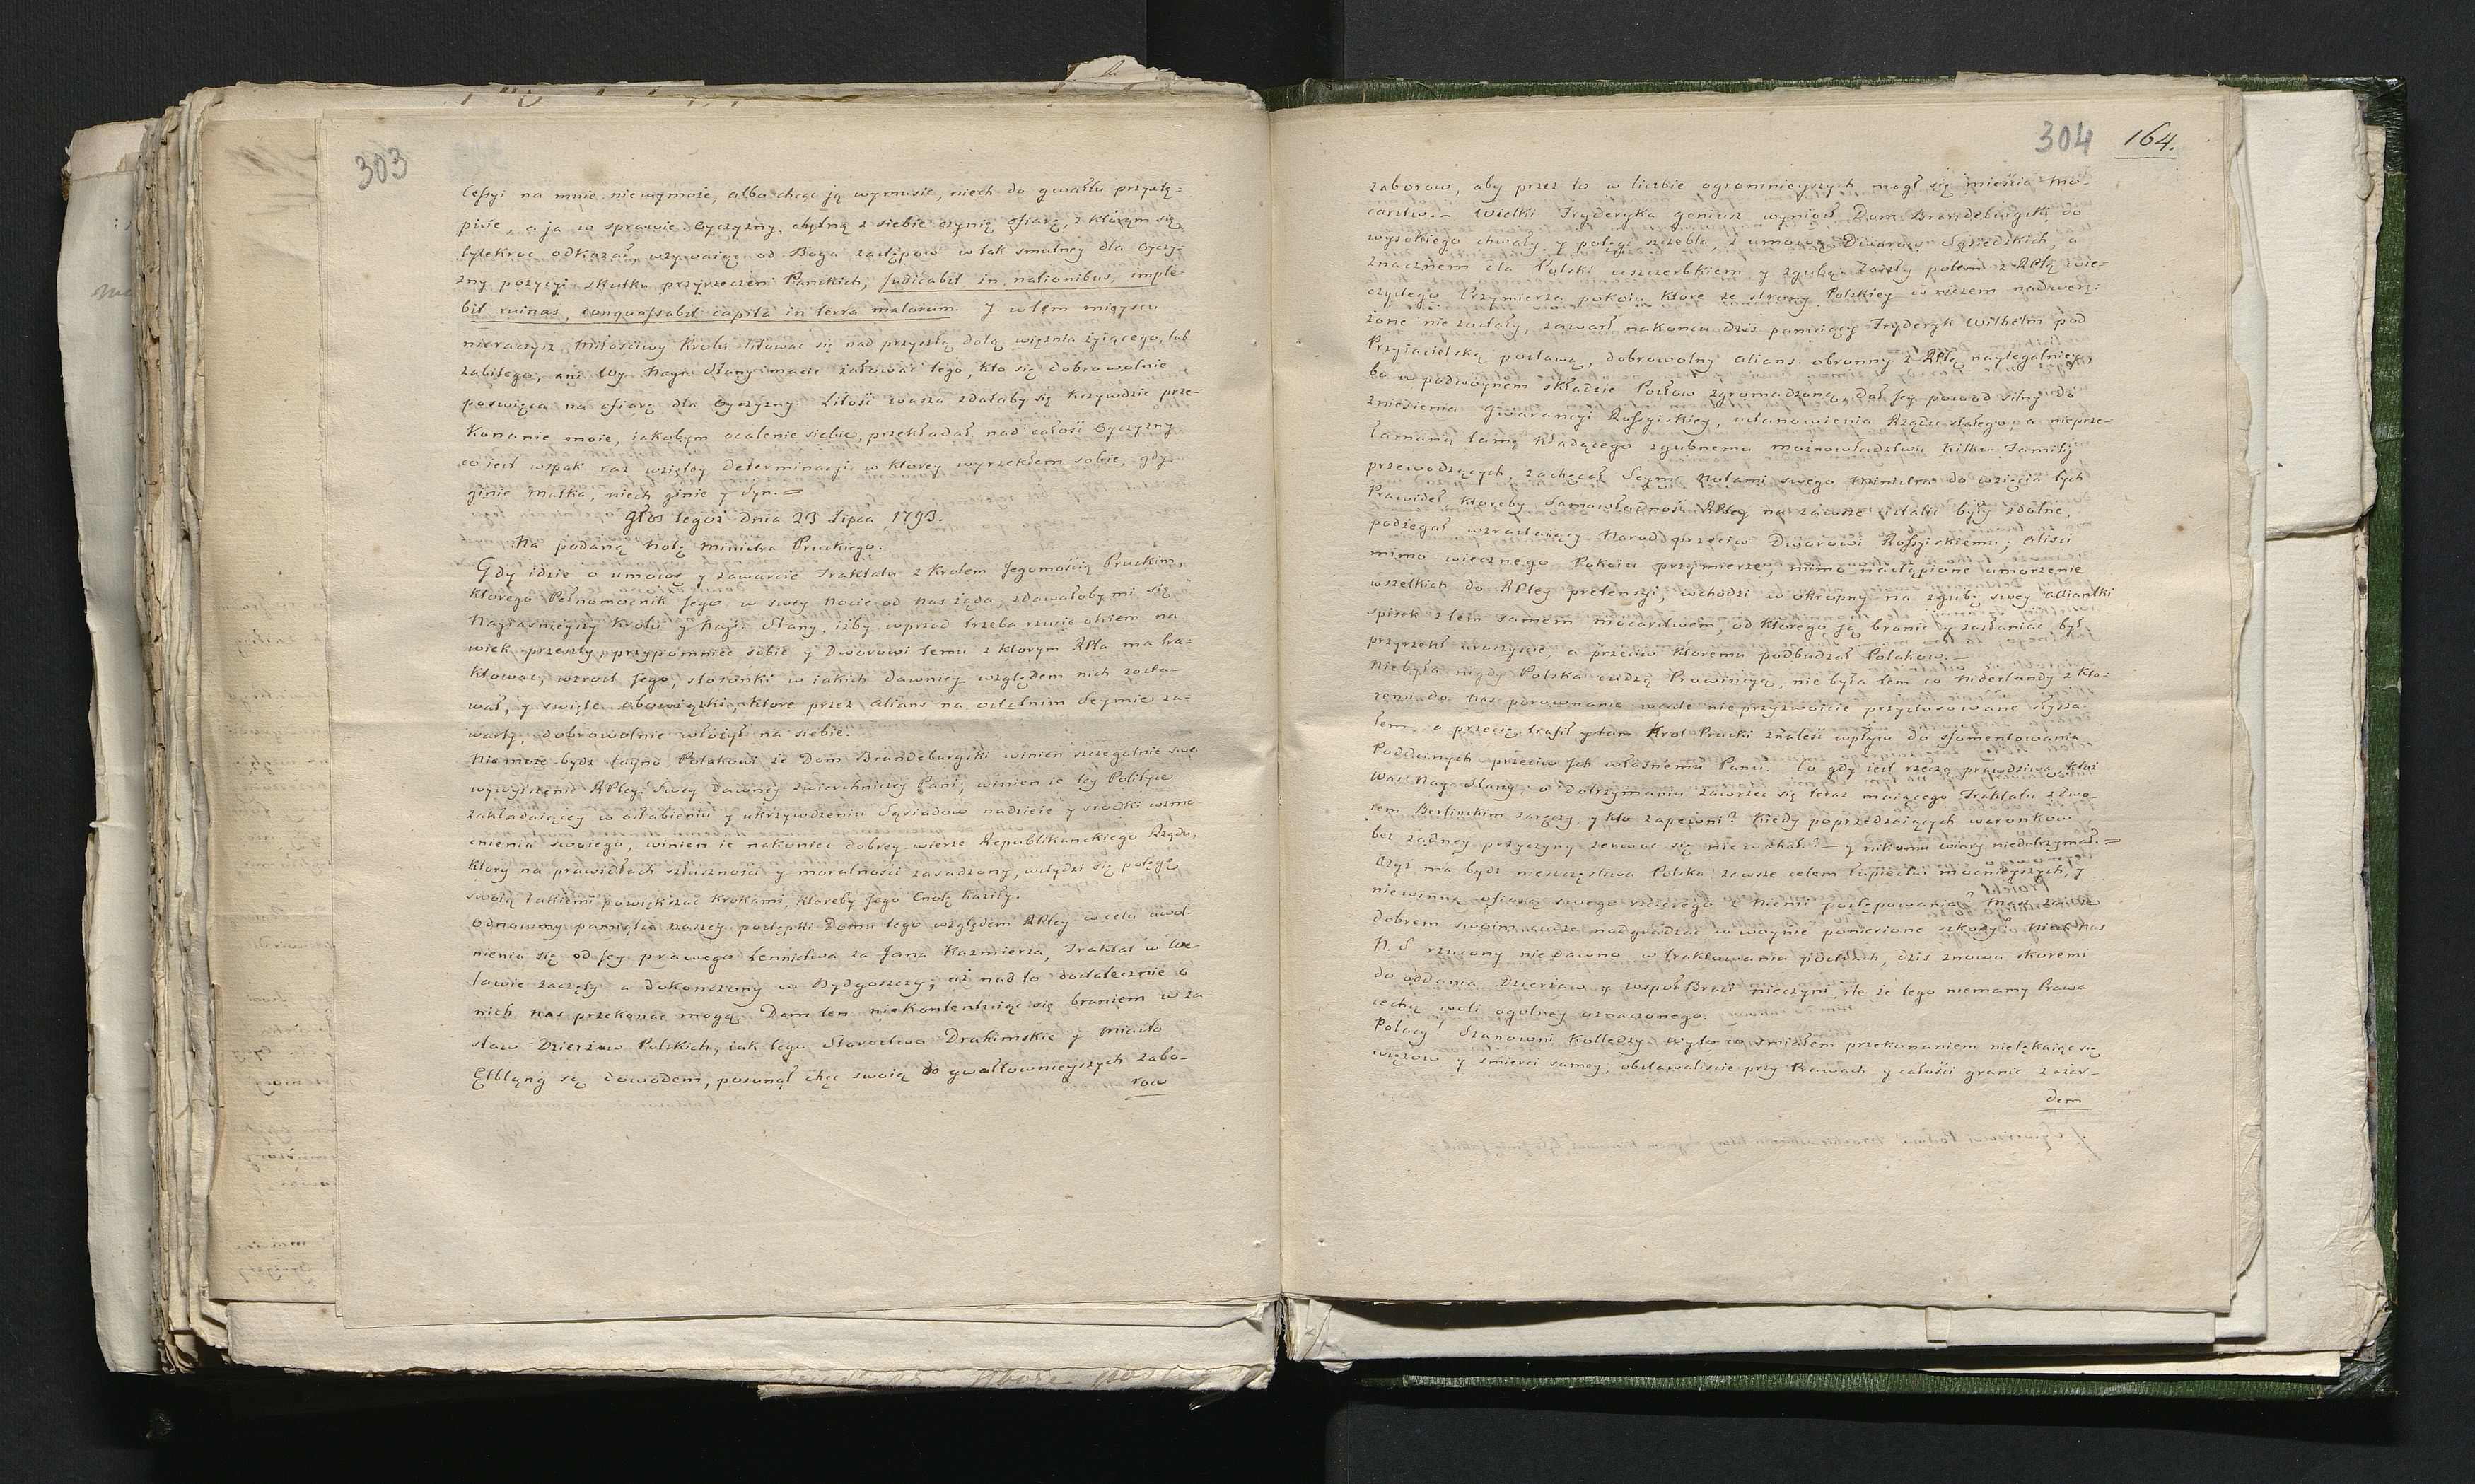 303
Cessyi na mnie niewymoże, albo chcąc ją wymusić, niech do gwałtu przystę-
pisie, a ja w sprawie Oyczyzny, chętną z siebie czynię ofiarę, z ktorąm się
tylekroć odkazał, wzywaiąc od Boga zastępow w tak smutney dla Oyczy-
zny pozycyi skutku przyrzeczeń Panskich, Judicabit in nationibus, imple-
bit ruinas, conquassabit capita in terra malorum. J w tem mieyscu
nieraczysz Miłościwy Krolu litować się nad przyszłą dolą więznia żyiącego, lub
zabitego, ani Wy Nayj: Stany macie żałować tego, kto się dobrowolnie
poswięca na ofiarę dla Oyczyzny. Litość wasza zdałaby się krzywdzić prze-
konanie moie, iakobym ocalenie siebie, przekładał nad całość Oyczyzny
co iest wspak raz wziętey determinacyi, w ktorey wyrzekłem sobie, gdy
ginie Matka, niech ginie y Syn.=
Głos tegoż dnia 23 Lipca 1793.
Na podaną Notę Ministra Pruskiego.
Gdy idzie o umowę y zawarcie Traktatu z Krolem Jegomością Pruskim,
ktorego Pełnomocnik Jego, w swey Nocie od nas żąda, zdawałoby mi się
Nayiasnieyszy Krolu y Nayj: Stany, iżby wprzod trzeba rzucić okiem na
wiek przeszły, przypomnieć sobie y Dworowi temu z ktorym RPta ma tra-
ktować, wzrost Jego, stosunki w iakich dawniey względem nich zosta-
wał, y swięte obowiązki, ktore przez Alians na ostatnim Seymie za-
warty, dobrowolnie włożył na siebie.
Nie może bydz tayno Polakowi że Dom Brandeburgski winien szczegulnie swe
wywyższenie RPtey: swey dawney zwierzchniczey Pani; winien ie tey Polityce
zakładaiącey w osłabieniu y ukrzywdzeniu Sąsiadow nadzieie y srodki wzmo
cnienia swoiego, winien ie nakoniec dobrey wierze Republikanckiego Rządu,
ktory na prawidłach słuszności y moralności zasadzony, wstydzi się potęgę
swoią takiemi powiększać krokami, ktoreby Jego Cnotę kaziły.
Odnowmy pamięcią naszey postępki Domu tego względem RPtey w celu uwol-
nienia się od Jey prawego Lennictwa za Jana Kazimierza, Traktat w We-
lawie zaczęty a dokonczony w Bydgoszczy; aż nad to dostatecznie o
nich nas przekonać mogą. Dom ten niekontentuiąc się braniem w za-
staw Dzierżaw Polskich, iak tego Starostwo Drahimskie y Miasto
Ęlbląng są dowodem, posunął chęć swoią do gwałtownieyszych zabo-
row
304 164.
zaborow, aby przez to w liczbie ogromnieyszych mogł się mieścić Mo-
carstw.- Wielki Fryderyka geniusz wyniosł Dom Brandeburgski do
wysokiego chwały y potęgi szczebla, z umową Dworow Sąsiedzkich, a
znacznem dla Polski uszczerbkiem y zgubą. Zaszły potem z RPtą wie-
czystego Przymierza pokoiu ktore ze strony Polskiey w niczem nadwerę-
żone nie zostały, zawarł nakoncu dzis panuiący Fryderyk Wilhelm pod
Przyiacielską postawą, dobrowolny alians obronny z RPtą naylegalniey
bo w podwoynem składzie Posłow zgromadzoną, dał Jey powod silny do
zniesienia gwarancyi Rossyiskiey, ustanowienia Rządu stałego, a nieprze-
łamaną tamę kładącego zgubnemu możnowładztwu kilku Familij
przewodzących, zachęcał Seym Notami swego Ministra do wzięcia tych
Prawideł ktoreby Samowładność RPtey na zawsze ustalić były zdolne,
podżegał wzrastaiący Narod przeciw Dworowi Rossyiskiemu; Alisci
mimo wiecznego Pokoiu przymierze, mimo nastąpione umorzenie
wszelkich do RPtey pretensyi, wchodzi w okropny na zgubę swey Alliantki
spisek z tem samem mocarstwem, od ktorego ją bronić y zasłaniać był
przyrzekł uroczyscie, a przeciw ktoremu podbudzał Polakow.-
Niebyła nigdy Polska cudzą Prowincyą, nie była tem co Niderlandy z kto-
remi do nas porownanie wcale nieprzyzwoicie przystosowane słysza-
łem, a przecię trafił y tam Krol Pruski znaleść wpływ do sfomentowania
Poddannych przeciw Jch własnemu Panu. Co gdy iest rzeczą prawdziwą, ktoż
Was Nay: Stany, o dotrzymaniu zawrzec się teraz maiącego Traktatu z Dwo-
rem Berlinskim zaręczy, y kto zapewni? Kiedy poprzedzaiących warunkow
bez żadney przyczyny zerwać się nie wzhał.- y nikomu wiary niedotrzymał.=
Czyż ma bydz nieszczęśliwa Polska zawsze celem łupieztw mocnieyszych, y
niewinną ofiarą swego szczerego z niemi postępowania? Masz zawsze
dobrem swoim cudze nadgradzać w woynie poniesione szkody? Niech Nas
N. S rzucony niedawno w traktowania postrach, dzis znowu skoremi
do oddania Dzierżaw y wspoł Braci nieczyni, ile że tego niemamy Prawa
cechą woli ogolney oznaczonego.
Polacy! Szanowni Kolledzy! wy to co śmiałem przekonaniem nielękaiąc się
więzow y smierci samey, obstawaliście przy Prawach y całości granic z azar-
dem